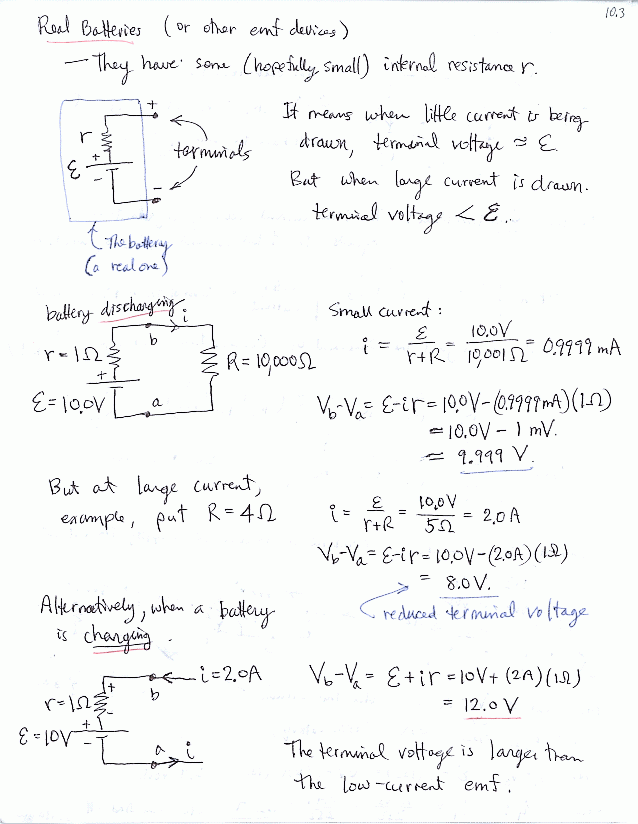 10.3
Real Batteries (or other emf devices)
— They have some (hopefully small) internal resistance r.
+
r
ε
+
-
-
terminals
The battery
(a real one)
It means when little current is being
drawn, terminal voltage ≈ ε.
But when large current is drawn.
terminal voltage < ε.
battery discharging
i
b
r = 1Ω
+
ε = 10.0V
a
R = 10,000Ω
Small current:
i = ε/(r+R) = 10.0V/10,001Ω = 0.9999 mA
Vb-Va = ε-ir = 10.0V-(0.9999mA)(1Ω)
= 10.0V - 1 mV.
= 9.999 V.
But at large current,
example, put R = 4Ω
i = ε/(r+R) = 10.0V/5Ω = 2.0A
Vb-Va = ε-ir = 10.0V-(2.0A)(1Ω)
= 8.0V.
reduced terminal voltage
Alternatively, when a battery
is charging.
i=2.0A
b
+
r=1Ω
-
+
ε=10V
-
a
i
Vb-Va = ε+ir = 10V+(2A)(1Ω)
= 12.0 V
The terminal voltage is larger than
the low-current emf.